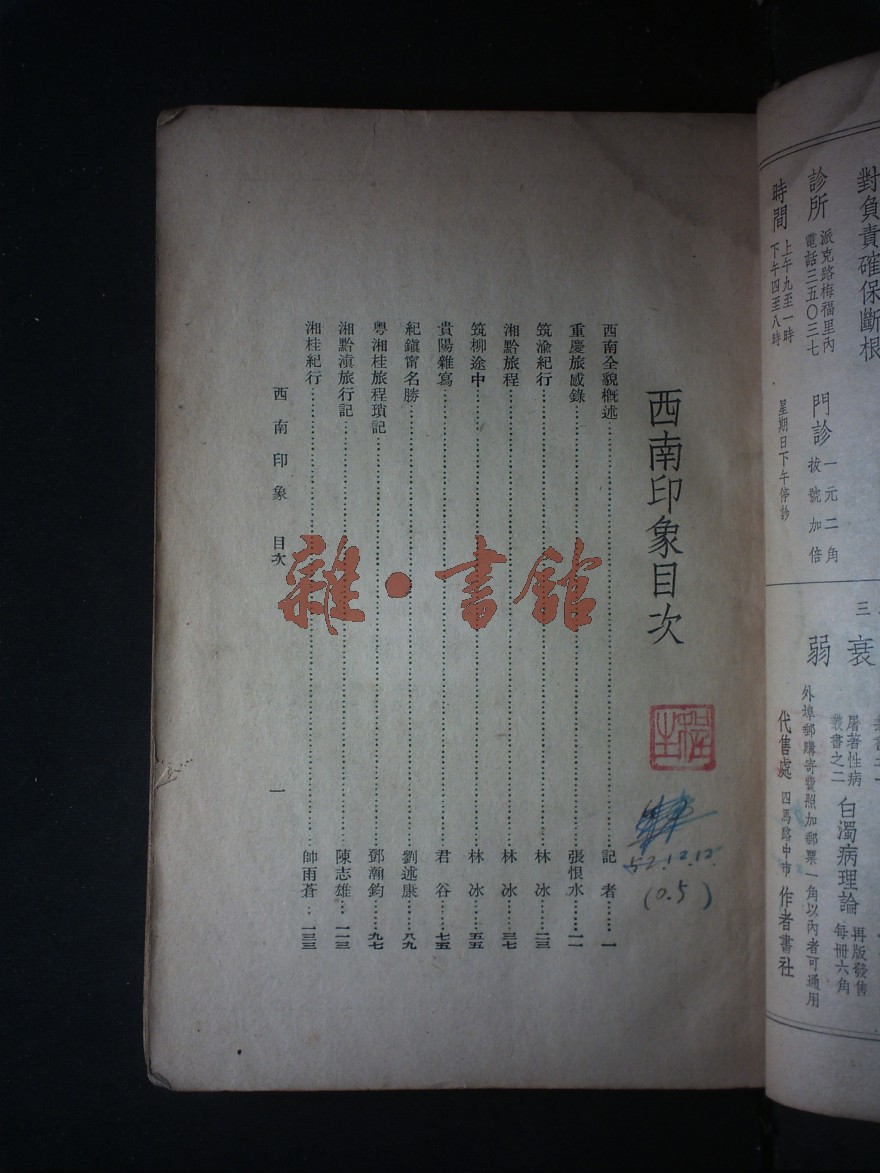 西南印象目次
西南全貌概述 記者 一
重慶旅感錄 張恨水 一一
筑渝紀行 林冰 二三
湘黔旅程 林冰 三七
筑柳途中 林冰 五五
貴陽雜寫 君谷 七五
紀鎮甯名勝 劉述康 八九
粵湘桂旅程瑣記 鄧瀚鈞 九七
湘黔滇旅行記 陳志雄 一一三
湘桂紀行 帥雨蒼 一三三
西南印象 目次
一
52.12.12.
(0.5)
雜·書館
對負責確保斷根
診所 派克路梅福里內
電話三五〇三七
時間 上午九至一時
下午四至八時
門診 一元二角
拔號加倍
星期日下午停診
三
衰
弱
屠著性病
叢書之二
白濁病理論
再版發售
每冊六角
外埠郵購寄費照加郵票一角以內者可通用
代售處 四馬路中市 作者書社